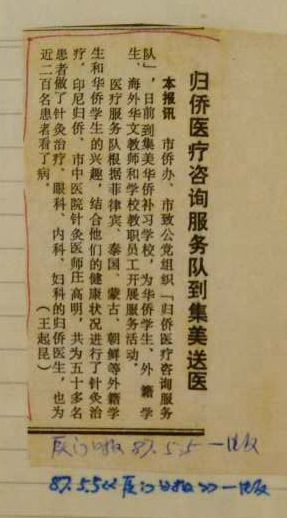 归侨医疗咨询服务队到集美送医
本报讯 市侨办、市致公党组织「归侨医疗咨询服务
队」,日前到集美华侨补习学校,为华侨学生、外籍学
生、海外华文教师和学校教职员工开展服务活动。
医疗服务队根据菲律宾、泰国、蒙古、朝鲜等外籍学
生和华侨学生的兴趣,结合他们的健康状况进行了针灸治
疗,印尼归侨、市中医院针灸医师庄高明,共为五十多名
患者做了针灸治疗,眼科、内科、妇科的归侨医生,也为
近二百名患者看了病。
(王起昆)
厦门日报 87.5.5 一版
87.5.5《厦门日报》一版